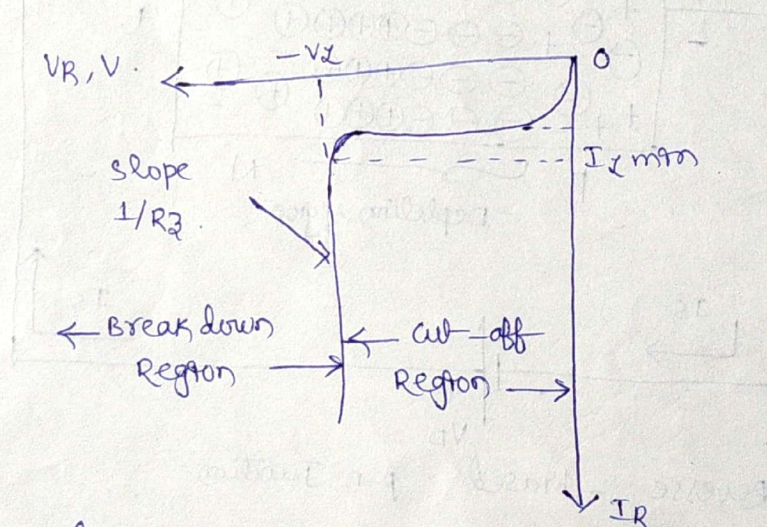 VR, V.
-VZ
O
IZ min
slope
1/RZ.
Break down
Region
cut-off
Region
IR